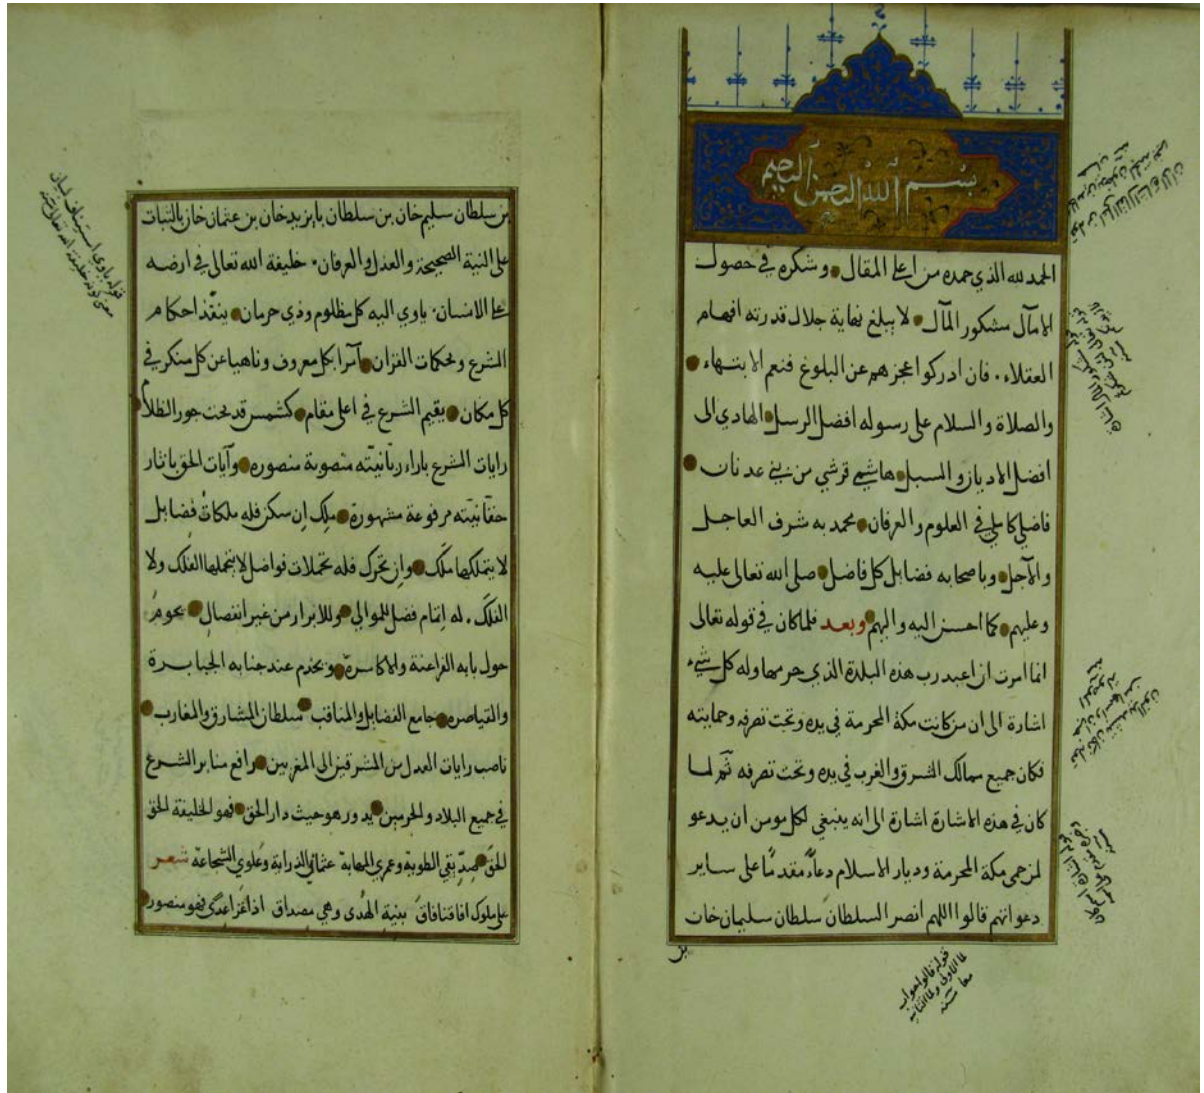 بسم الله الرحمن الرحيم
الحمد لله الذي حمده من اعلى المقال وشكره في حصول
الامآل مشكور المآل لا يبلغ نهاية جلال قدرته افهام
العقلاء. فان ادركوا عجزهم عن البلوغ فنعم الابتهاء
والصلاة والسلام على رسوله افضل الرسل الهادي الى
افضل الاديان والسبل هاشمي قرشي من بني عدنان
فاضل كامل في العلوم والعرفان محمد به شرف العاجل
والآجل وباصحابه فضايل كل فاضل صلى الله تعالى عليه
وعليهم كما احسن اليه واليهم وبعد فلما كان في قوله تعالى
انما امرت ان اعبد رب هذه البلدة الذي حرمها وله كل شيء
اشارة الى ان من كانت مكة المحرمة في يده وتحت تصرفه وحمايته
فكان جميع ممالك الشرق والغرب في يده وتحت تصرفه ثم لما
كان في هذه الاشارة اشارة الى انه ينبغي لكل مومن ان يدعو
لمن حمى مكة المحرمة وديار الاسلام دعاءً مقدمًا على ساير
دعواتهم قالوا اللهم انصر السلطان سلطان سليمان خان
قوله قالوا جواب
لما الاولى ولما الثانية
بن سلطان سليم خان بن سلطان بايزيد خان بن عثمان خان بالثبات
على النية الصحيحة والعدل والعرفان. خليفة الله تعالى في ارضه
على الانسان. ياوي اليه كل مظلوم وذي حرمان ينفذ احكام
الشرع ومحكمات القران آمرا بكل معروف وناهيا عن كل منكر في
كل مكان يقيم الشرع في اعلى مقام كشمس قد محت جور الظلام
رايات الشرع باراء ربانيته منصوبة منصوره وآيات الحق باثار
حقانيته مرفوعة مشهورة ملك ان سكن فله ملكات فضايل
لا يتملكها ملك وان تحرك فله تحملات فواضل لا يتحملها الفلك ولا
الفلك. له اتمام فضل للموالي وللابرار من غير انفصال يحوم
حول بابه الفراعنة والاكاسرة ويخدم عند جنابه الجبابرة
والقياصره جامع الفضايل والمناقب سلطان المشارق والمغارب
ناصب رايات العدل من المشرقين الى المغربين رافع منابر الشرع
في جميع البلاد والحرمين يدور هو حيث دار الحق فهو الخليفة الحق
الحق صديقي الطوية وعمري المهابة عثماني الدراية وعلوي الشجاعة شعر
على ملوك افاقنا فاق بنية الهدى وهي مصداق اذا غزا عدى فهو منصور